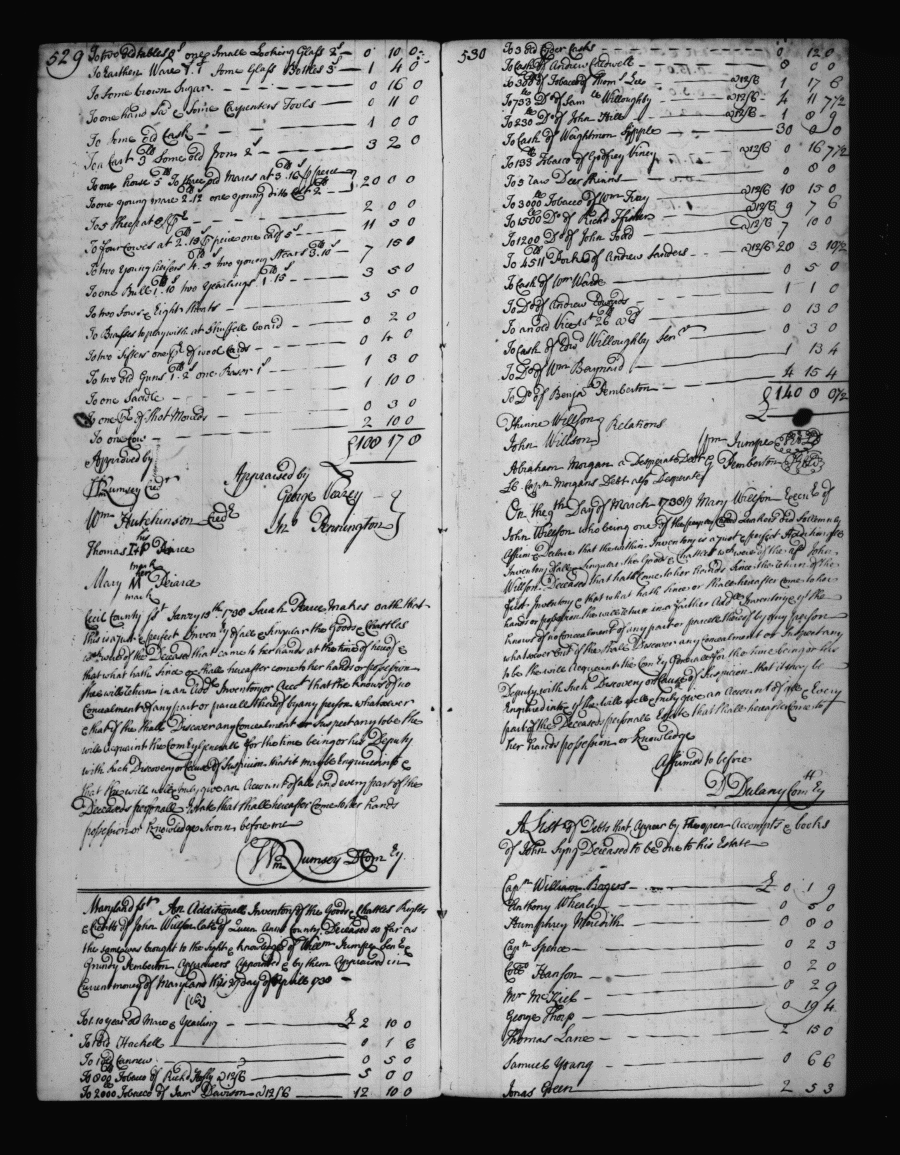 529
To two old tables 8s one Small Looking Glass 2s — 0 10 0
To Earthen Ware 1.1 Some Glass Bottles 3s — 1 4 0
To Some brown Sugar — 0 16 0
To one hand Saw & Some Carpenters Tools — 0 11 0
To Some old Cask — 1 0 0
To a Cart 3 lb Some old Irons 2s — 3 2 0
To one horse 5 lb To three old Mares at 3.16 p piece
To one young mare 2.12 one young ditto 2 — 20 0 0
To 5 Sheep at 8s — 2 0 0
To four Cowes at 2.13 p piece one Calf 5s — 11 3 0
To two young heifers 4.5 two young Stears 3.10s — 7 15 0
To one Bull 1.10s two Yearlings 1.15 — 3 5 0
To two Sows & Eight Shoats — 3 5 0
To Brasses to play with at Shuffell board — 0 2 0
To two Sifters one pr of wool Cards — 0 4 0
To two old Guns 1.2s one Rasor 1s — 1 3 0
To one Saddle — 1 10 0
To one pr of Shot Moulds — 0 3 0
To one Cow — 2 10 0
£108 17 8
Approved by
Rumsey Credr
Appraised by
George Veazey
Wm Hutchinson Credr
Jno Pennington
his
Thomas Pearce
mark
her
Mary M Pearce
mark
Cecil County sst Janry 13th 1738 Sarah Pearce makes oath that
this is a just & perfect Inventy of all & singular the Goods & Chattles
wch were of the Deceased that came to her hands at the time of
that what hath since or shall hereafter come to her hands or possession
She will return in an Addl Inventory or Acct that She knows of no
Concealment of any part or parcell thereof by any person whatsoever
& that if She shall Discover any Concealment or Suspect any to be She
will acquaint the Com Ery Generall for the time being or his Deputy
with such Discovery or Cause of Suspicion that it may be Enquired into &
that She will well & truly give an Account of all and every part of the
Deceaseds personall Estate that shall hereafter Come to her hands
possession or Knowledge Sworn before me
Wm Rumsey D Com Ry.
Maryland sst An Additionall Inventory of the Goods & Chattles Rights
& Credits of John Willson late of Queen Anns County Deceased so far as
the same was brought to the Sight & knowledge of William Jumpe Senr &
Grundy Pemberton Appraisers Appointed & by them Appraised in
Current money of Maryland this 27 day of Aprill 1738
(Vizt)
To 1 10 year old Mare & Yearling — £2 10 0
To 1 old Hackell — 0 1 6
To 1 old — 0 5 0
To 800 lb Tobacco of Richd @12/6 — 5 0 0
To 2000 Tobacco of Jams Davison @12/6 — 12 10 0
530
To 3 old Cyder Casks — 0 12 0
To Cash of Andrew Caldwell — 8 0 0
To 300 of Tobacco of Thoms Lee @12/6 1 17 6
To 733 Do of Saml Willoughby — @12/6 4 11 7 1/2
To 230 Do of John Hill — @12/6 1 8 9
To Cash of Weightman Sipple — 30 0 0
To 133 Tobacco of Godfrey Viney — @12/6 0 16 7 1/2
To 3 raw Deer Skinns — 0 8 0
To 3000 Tobacco of Wm Fray — @12/6 18 15 0
To 1500 Do of Richd Fisher — @12/6 9 7 6
To 1200 Do of John Todd — @12/6 7 10 0
To 4511 Pork of Andrew Sanders — @12/6 28 3 10 1/2
To Cash of Wm Warde — 0 5 0
To Do of Andrew Edwards — 1 1 0
To an old Vice st 26 @ 6d — 0 13 0
To Cash of Edwd Willoughby Senr — 0 3 0
To Do of Wm Baynard — 1 13 4
To Do of Benja Pemberton — 4 15 4
£140 8 0 1/2
Thinne Willson
John Willson
Relations
Wm Jumpe
Abraham Morgan a Desperate Debt
G Pemberton
& Captn Morgans Debt also Desperate
On the 9th Day of March 1738/9 Mary Willson Execx of
John Willson who being one of the people Called Quakers did Solemnly
Affirm & Declare that the within Inventory is a just & perfect Additional
Inventory of all & Singular the Goods & Chattles wch were of the afd John
Willson Deceased that hath come to her hands Since the return of the
first Inventory & that what hath since or shall hereafter come to her
hands or possession She will return in a further Addl Inventory & She
knows of no Concealment of any part or parcell thereof by any person
whatsoever but if She shall Discover any concealment or Suspect any
to be She will acquaint the Com Ry Generall for the time being or his
Deputy with Such Discovery or Cause of Suspicion that it may be
Enquired into & She will well & truly give an Account of all & Every
part of the Deceaseds personall Estate that shall hereafter Come to
her hands possession or Knowledge
Affirmed to before
D Dulany Com Ry
A List of Debts that Appear by the open Accompts & books
of John Syng Deceased to be due to his Estate
Captn William Rogers — £0 1 9
Anthony Whealey — 0 5 0
Humphrey Meredith — 0 8 0
Captn Spence — 0 2 3
Collo Hanson — 0 2 0
Mr McKiel — 0 2 9
George Thorp — 0 19 4
Thomas Lane — 2 15 0
Samuel Young — 0 6 6
Jonas Green — 2 5 3